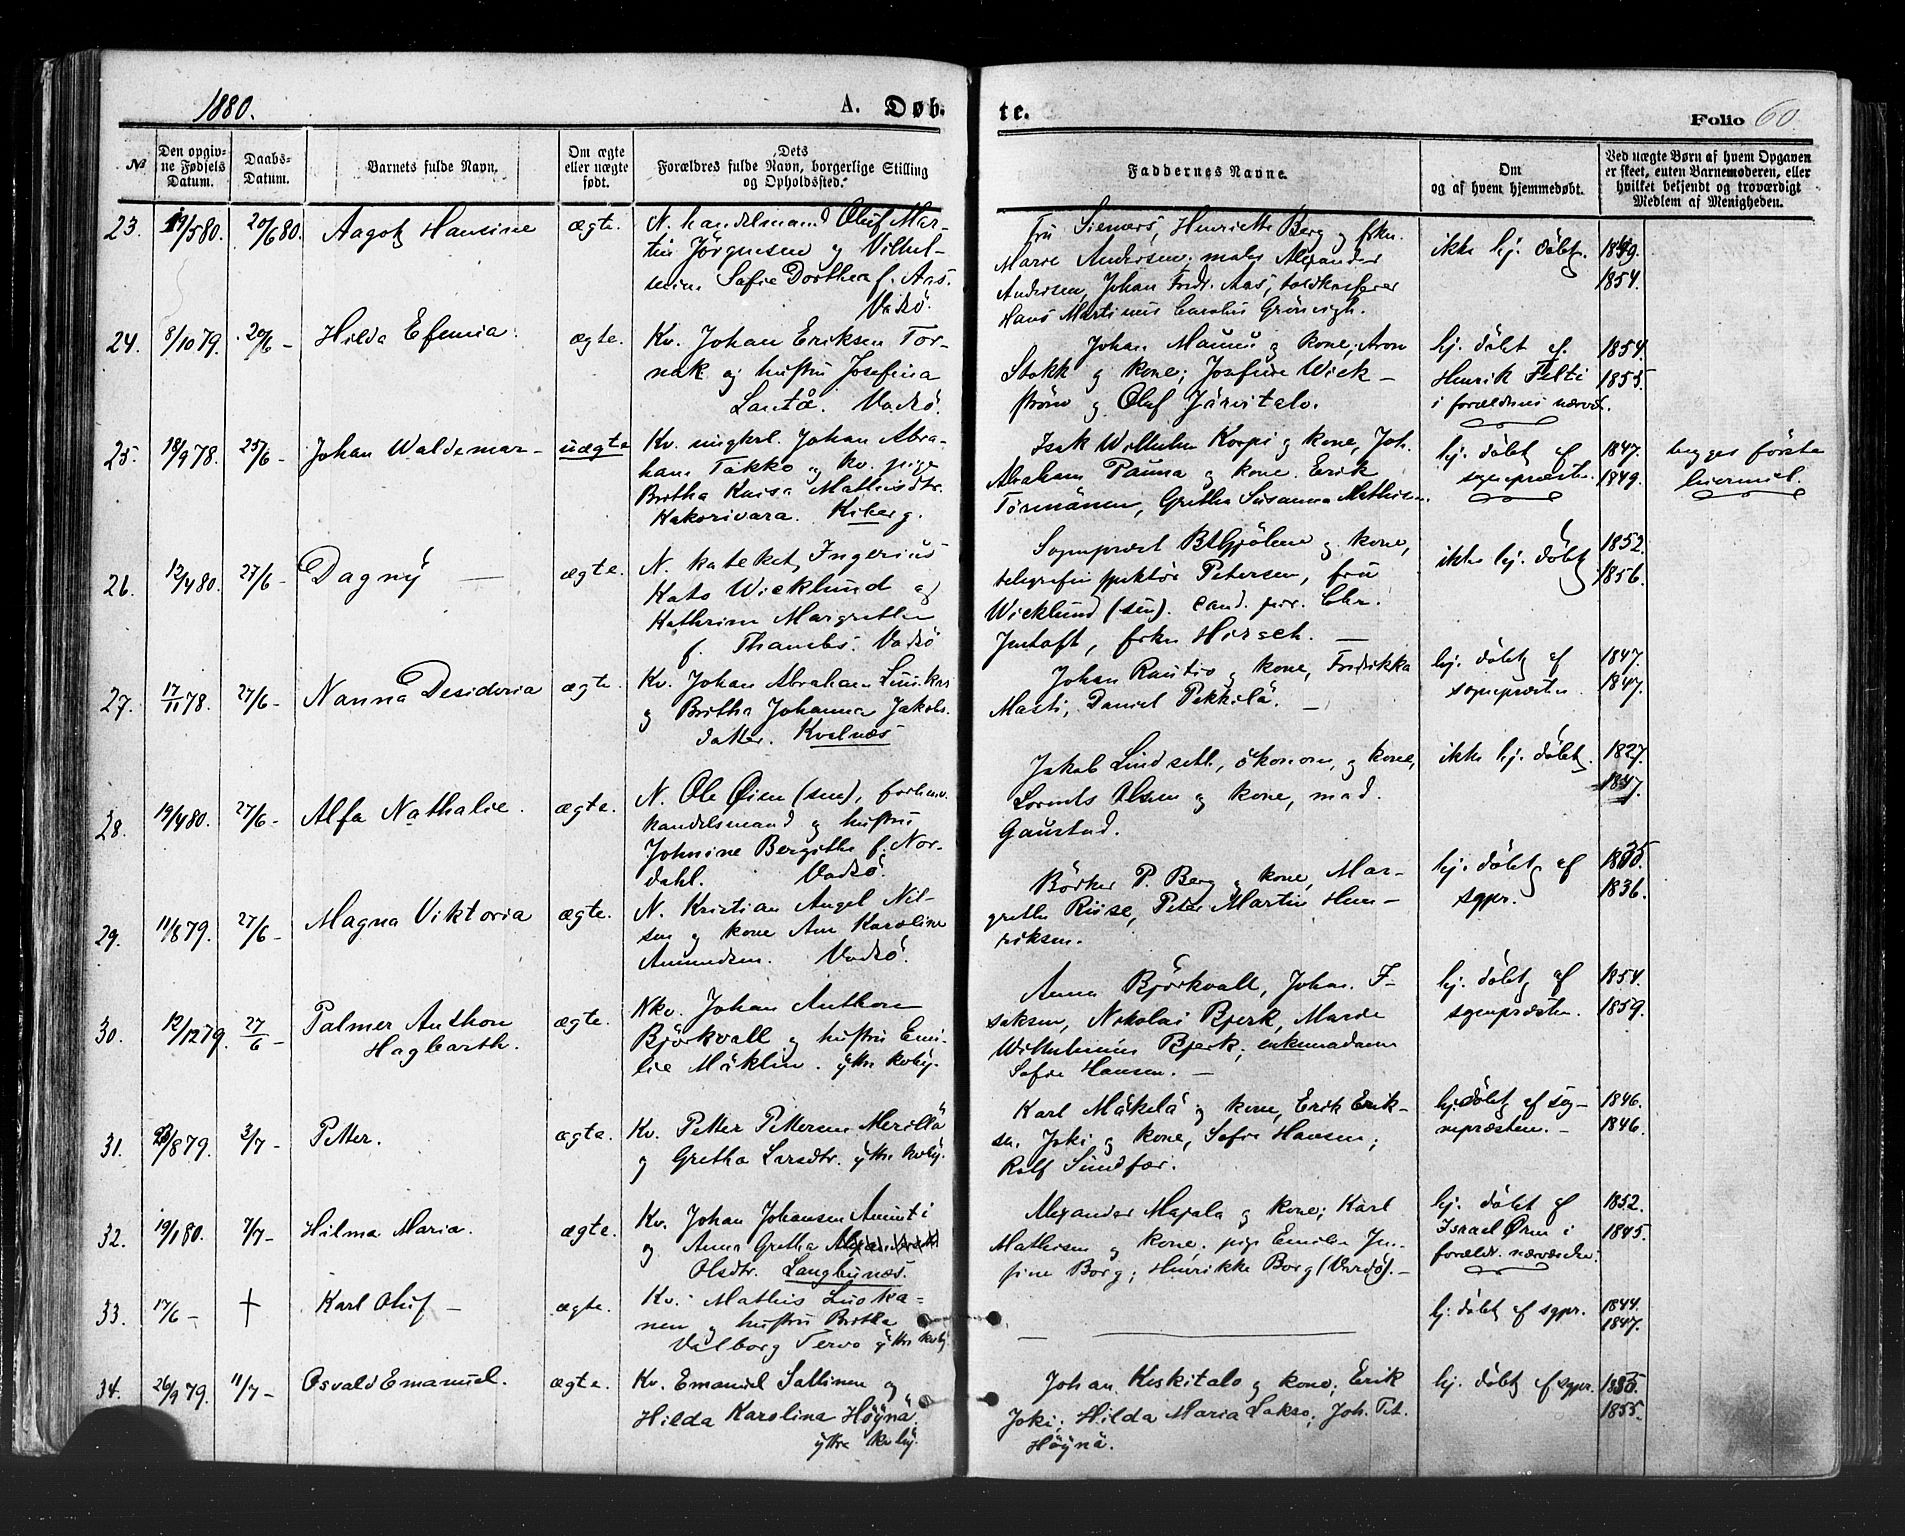 1880.
A. Døb-
te.
Folio 60
№
Den opgiv-
ne Fødsels
Datum.
Daabs-
Datum.
Barnets fulde Navn.
Om ægte
eller uægte
født.
Dets
Forældres fulde Navn, borgerlige Stilling
og Opholdssted.
Faddernes Navne.
Om
og af hvem hjemmedøbt.
Ved uægte Børn af hvem Opgaven
er skeet, enten Barnemoderen, eller
hvilket bekjendt og troværdigt
Medlem af Menigheden.
23.
19/5 80.
20/6 80.
Aagot Hansine
ægte.
N. handelsmand Oluf Mar-
tin Jørgensen og Vilhel-
mine Sofie Dorthea f. Aas.
Vadsö.
Fru Siemers, Henriette Berg og frkn.
Marie Andersen; maler Alexander
Andersen, Johan Fredr. Aas, toldkasserer
Hans Martinus Carolus Grönvigh.
ikke hj. döbt.
1849.
1854.
24.
8/10 79.
20/6 -
Hilda Efemia.
ægte.
Kv. Johan Eriksen Tor-
nak og hustru Josefina
Lantå. Vadsö.
Johan Maunu og kone; Aron
Stokk og kone; Josefine Wick-
ström og Oluf Järvitalo.
hj. döbt af
Henrik Felti
i forældrenes nærvær.
1854.
1855.
25.
18/9 78.
25/6 -
Johan Waldemar -
uægte
Kv. ungkrl. Johan Abra-
ham Takko og kv. pige
Britha Kaisa Mathisdtr.
Kakorivara. Kiberg.
Isak Wilhelm Korpi og kone, Joh.
Abraham Pauna og kone. Erik
Törmänen, Gretha Susanna Mathisen.
hj. döbt af
sognepræsten.
1847.
1849.
begges förste
leiermål.
26.
12/4 80.
27/6 -
Dagny -
ægte.
N. kateket Ingerius
Kato Wicklund og
Kathrine Margrethe
f. Thambs. Vadsö
Sognepræst B. Gjölme og kone,
telegrafinspektör Petersen, fru
Wicklund (sen). Cand. jur. Chr.
Jentoft, frkn Hirsch. -
ikke hj. döbt
1852.
1856.
27.
17/11 78.
27/6 -
Nanna Desideria
ægte.
Kv. Johan Abraham
og Britha Johanna Jakobs-
datter. Kvalnæs
Johan Rautio og kone, Fredrikka
Masti, Daniel Pekkilä. -
hj. döbt af
sognepræsten
1847.
1847.
28.
19/4 80.
27/6 -
Alfa Nathalie.
ægte.
N. Ole Öien (sen), forhenv.
handelsmand og hustru
Johnine Bergithe f. Nor-
dahl. Vadsö.
Jakob Lindseth, ökonom, og kone,
Lorents Olsen og kone, mad.
Gaustad.
ikke hj. döbt.
1827.
1847.
29.
11/8 79.
27/6 -
Magna Viktoria
ægte.
N. Kristian Angel Nil-
sen og kone Ane Karoline
Amundsen. Vadsö.
Bödker P. Berg og kone, Mar-
grethe Riise, Peter Martin Hen-
riksen.
hj. döbt af
sgpr.
1835.
1836.
30.
12/12 79.
27/6 -
Palmer Anthon
Hagbarth.
ægte.
Nkv. Johan Anthon
Björkvall og hustru Emi-
lie Mäklin. ytre kvby.
Anna Björkvall, Johan F-
saksen, Nikolai Bjerk, Marie
Wilhelmine Bjerk; enkemadam
Sofie Hansen. -
hj. döbt af
sgnepræsten.
1854.
1859.
31.
23/8 79.
3/7 -
Petter.
ægte.
Kv. Petter Pettersen Merillä
og Gretha Larsdtr. ytre kvby.
Karl Mäkelä og kone, Erik Erik-
sen Joki og kone, Sofie Hansen;
Rolf Sundfær.
hj. döbt af sog-
nepræsten. -
1846.
1846.
32.
19/1 80.
7/7 -
Hilma Maria.
ægte.
Kv. Johan Johansen Anunti
og Anna Gretha
Olsdtr. Langbunæs.
Alexander Majala og kone; Karl
Mathisen og kone. pige Emilie Jo-
sefine Borg; Henrikke Borg (Vardö). -
hj. döbt af
Israel Örn i
forældr. nærværelse.
1852.
1845.
33.
17/6 -
+
Karl Oluf -
ægte.
Kv. Mathis Luoka-
nen og hustru Britha
Valborg Tervo ytre kvby
hj. döbt af sgpr.
1844.
1847.
34.
26/9 79.
11/7 -
Osvald Emanuel.
ægte.
Kv. Emanuel Sallinen og
Hilda Karolina Höynä.
ytre kvby.
Johan Keskitalo og kone; Erik
Joki; Hilda Maria Lakso; Joh. Pet.
Höynä.
hj. döbt af sgpr.
1855.
1855.